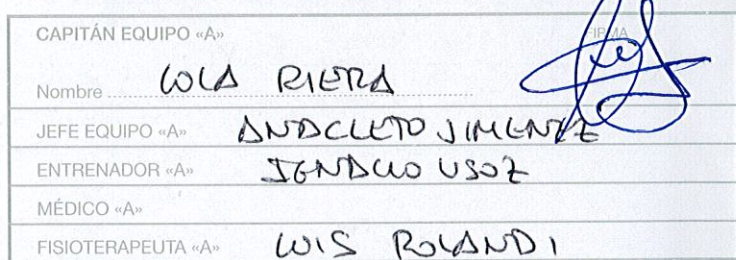 CAPITÁN EQUIPO «A» FIRMA
Nombre LOLA RIERA
JEFE EQUIPO «A» ANACLETO JIMENEZ
ENTRENADOR «A» IGNACIO USOZ
MÉDICO «A»
FISIOTERAPEUTA «A» LUIS ROLANDI